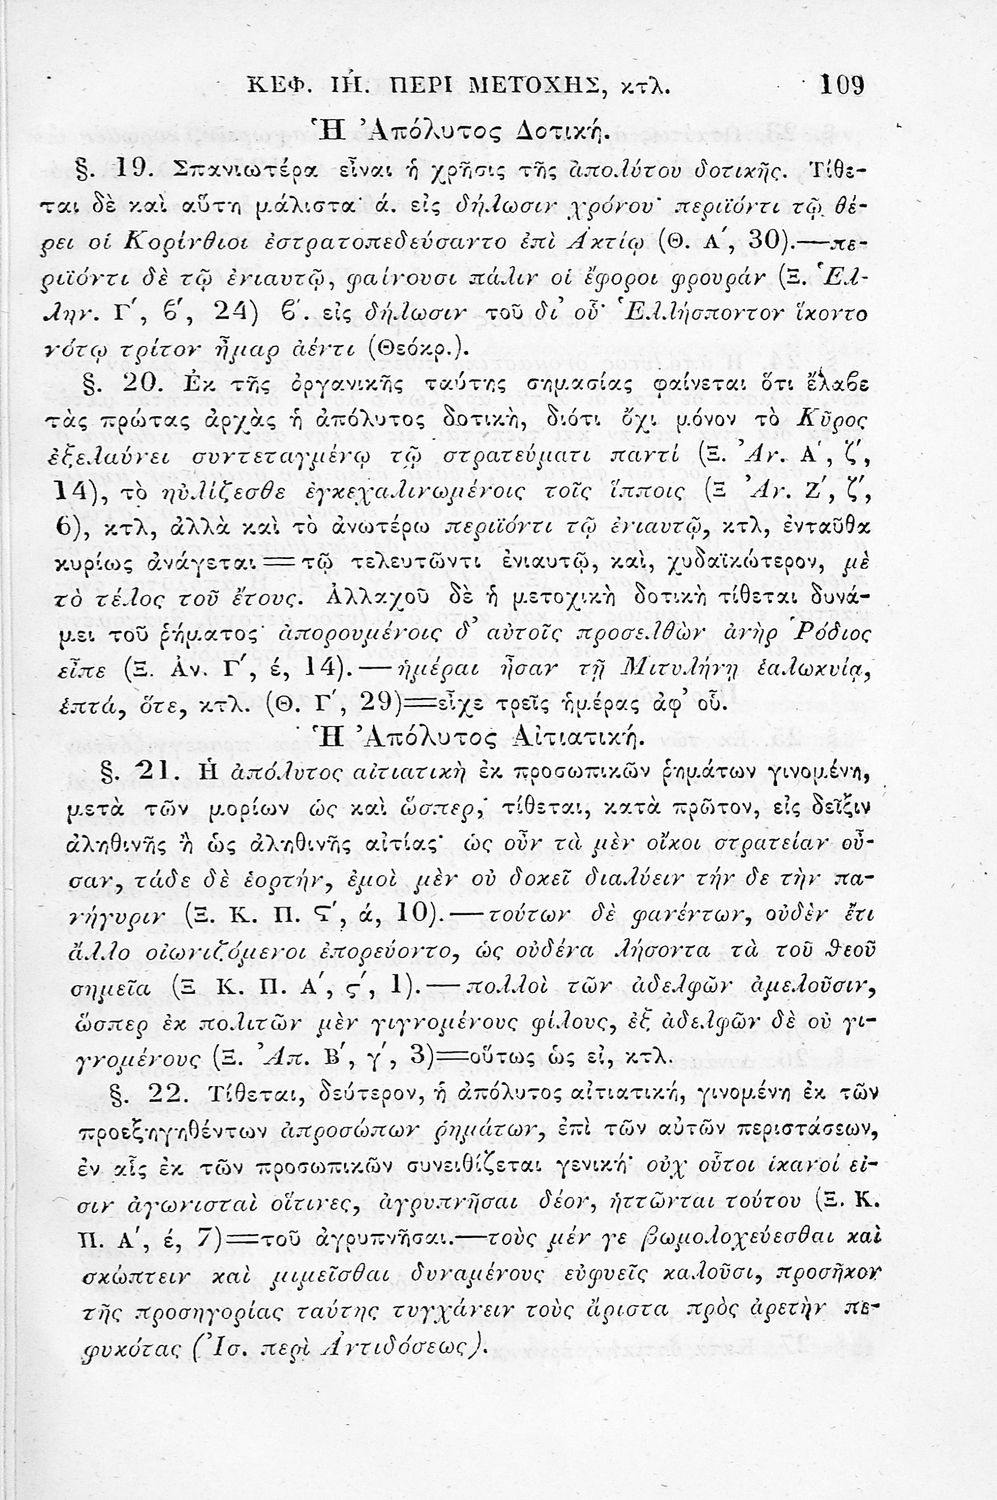 ΚΕΦ. ΙΗ. ΠΕΡΙ ΜΕΤΟΧΗΣ, κτλ. 109
Ἡ Ἀπόλυτος Δοτική.
§. 19. Σπανιωτέρα εἶναι ἡ χρῆσις τῆς ἀπολύτου δοτικῆς. Τίθε-
ται δὲ καὶ αὕτη μάλιστα· ά. εἰς δήλωσιν χρόνου· περιϊόντι τῷ θέ-
ρει οἱ Κορίνθιοι ἐστρατοπεδεύσαντο ἐπὶ Ἀκτίῳ (Θ. Α΄, 30).—πε-
ριϊόντι δὲ τῷ ἐνιαυτῷ, φαίνουσι πάλιν οἱ ἔφοροι φρουράν (Ξ. Ἑλ-
λην. Γ΄, ϐ΄, 24) ϐ΄. εἰς δήλωσιν τοῦ δι’ οὗ· Ἑλλήσποντον ἵκοντο
νότῳ τρίτον ἦμαρ ἀέντι (Θεόκρ.).
§. 20. Ἐκ τῆς ὀργανικῆς ταύτης σημασίας φαίνεται ὅτι ἔλαϐε
τὰς πρώτας ἀρχὰς ἡ ἀπόλυτος δοτικὴ, διότι ὄχι μόνον τὸ Κῦρος
ἐξελαύνει συντεταγμένῳ τῷ στρατεύματι παντί (Ξ. Ἀν. Α΄, ζ΄,
14), τὸ ηὐλίζεσθε ἐγκεχαλινωμένοις τοῖς ἵπποις (Ξ Ἀν. Ζ΄, ζ΄,
6), κτλ, ἀλλὰ καὶ τὸ ἀνωτέρω περιϊόντι τῷ ἐνιαυτῷ, κτλ, ἐνταῦθα
κυρίως ἀνάγεται = τῷ τελευτῶντι ἐνιαυτῷ, καὶ, χυδαϊκώτερον, μὲ
τὸ τέλος τοῦ ἔτους. Ἀλλαχοῦ δὲ ἡ μετοχικὴ δοτικὴ τίθεται δυνά-
μει τοῦ ῥήματος· ἀπορουμένοις δ’ αὐτοῖς προσελθὼν ἀνὴρ Ῥόδιος
εἶπε (Ξ. Ἀν. Γ΄, έ, 14). — ἡμέραι ἦσαν τῇ Μιτυλήνῃ ἑαλωκυίᾳ,
ἑπτά, ὅτε, κτλ. (Θ. Γ΄, 29)=εἶχε τρεῖς ἡμέρας ἀφ’ οὗ.
Ἡ Ἀπόλυτος Αἰτιατική.
§. 21. Ἡ ἀπόλυτος αἰτιατικὴ ἐκ προσωπικῶν ῥημάτων γινομένη,
μετὰ τῶν μορίων ὡς καὶ ὥσπερ, τίθεται, κατὰ πρῶτον, εἰς δεῖξιν
ἀληθινῆς ἢ ὡς ἀληθινῆς αἰτίας· ὡς οὖν τὰ μὲν οἴκοι στρατείαν οὖ-
σαν, τάδε δὲ ἑορτήν, ἐμοὶ μὲν οὐ δοκεῖ διαλύειν τήν δε τὴν πα-
νήγυριν (Ξ. Κ. Π. Ϛ΄, ά, 10).—τούτων δὲ φανέντων, οὐδὲν ἔτι
ἄλλο οἰωνιζόμενοι ἐπορεύοντο, ὡς οὐδένα λήσοντα τὰ τοῦ ϑεοῦ
σημεῖα (Ξ Κ. Π. Α΄, ϛ΄, 1).—πολλοὶ τῶν ἀδελφῶν ἀμελοῦσιν,
ὥσπερ ἐκ πολιτῶν μὲν γιγνομένους φίλους, ἐξ ἀδελφῶν δὲ οὐ γι-
γνομένους (Ξ. Ἀπ. Β΄, γ΄, 3)=οὕτως ὡς εἰ, κτλ.
§. 22. Τίθεται, δεύτερον, ἡ ἀπόλυτος αἰτιατική, γινομένη ἐκ τῶν
προεξηγηθέντων ἀπροσώπων ῥημάτων, ἐπὶ τῶν αὐτῶν περιστάσεων,
ἐν αἷς ἐκ τῶν προσωπικῶν συνειθίζεται γενική· οὐχ οὗτοι ἱκανοί εἰ-
σιν ἀγωνισταὶ οἵτινες, ἀγρυπνῆσαι δέον, ἡττῶνται τούτου (Ξ. Κ.
Π. Α΄, έ, 7)=τοῦ ἀγρυπνῆσαι.—τοὺς μέν γε βωμολοχεύεσθαι καὶ
σκώπτειν καὶ μιμεῖσθαι δυναμένους εὐφυεῖς καλοῦσι, προσῆκον
τῆς προσηγορίας ταύτης τυγχάνειν τοὺς ἄριστα πρὸς ἀρετὴν πε-
φυκότας (Ἰσ. περὶ Ἀντιδόσεως).